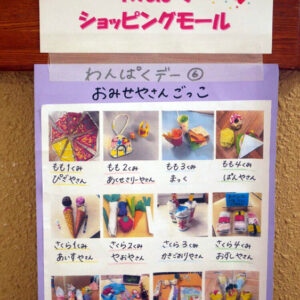 ショッピングモール
わんぱくデー⑥
おみせやさんごっこ
もも1くみ もも2くみ もも3くみ もも4くみ
ぴざやさん あくせさりーやさん まっく ぱんやさん
さくら1くみ さくら2くみ さくら3くみ さくら4くみ
あいすやさん やおやさん かきごおりやさん おすしやさん